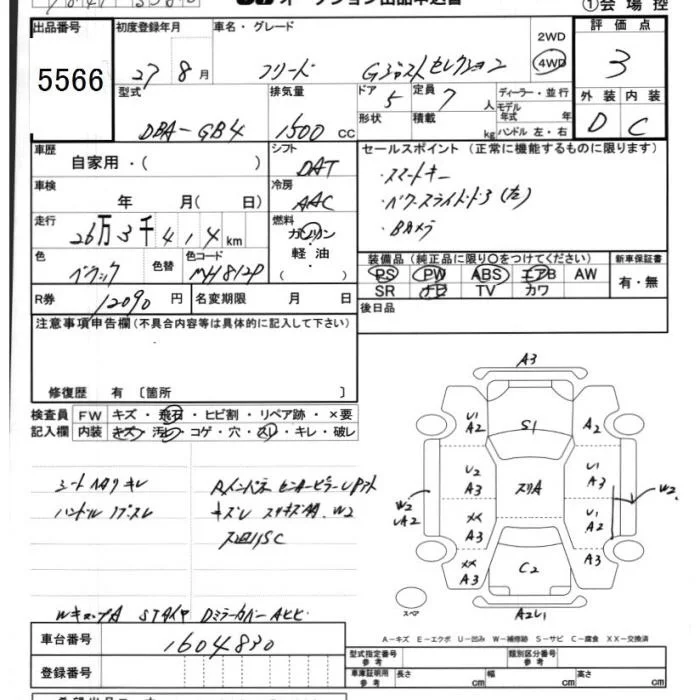 オークション出品申込書
①会場控
出品番号 初度登録年月 車名・グレード 評価点
5566 27 8月 フリード Gジャストセレクション 2WD 4WD 3
型式 排気量 ドア 定員 ディーラー・並行
DBA-GB4 1500cc 5 7人 モデル年式 年
形状 積載 kg ハンドル 左・右
外装 内装
D C
車歴 自家用・( )
シフト DAT
セールスポイント(正常に機能するものに限ります)
・スマートキー
・パワースライドドア(左)
・Bカメラ
車検 年 月( 日)
冷房 AAC
走行 26万3千414km
燃料 ガソリン・軽油・( )
色 色替 色コード
MH812P
装備品(純正品に限り○をつけてください) 新車保証書
PS PW ABS エアB AW
SR ナビ TV カワ
有・無
R券 12090円 名変期限 月 日
後日品
注意事項申告欄(不具合内容等は具体的に記入して下さい)
修復歴 有〔箇所 〕
検査員記入欄
FW キズ・飛石・ヒビ割・リペア跡・×要
内装 キズ・汚れ・コゲ・穴・スレ・キレ・破レ
シートヘタリ キレ
ハンドル ノブスレ
W2
A3
U1 A2
S1
A2
U2 A3
スリA
U1 A3
W2 UA2
W2
XX A3
U1 A2
XX A3
C2
A3
スペア
A2U1
A-キズ E-エクボ U-凹み W-補修跡 S-サビ C-腐食 XX-交換済
車台番号 1604830
登録番号
型式指定番号 参考 類別区分番号 参考
車庫証明用 参考 長さ cm 幅 cm 高さ cm